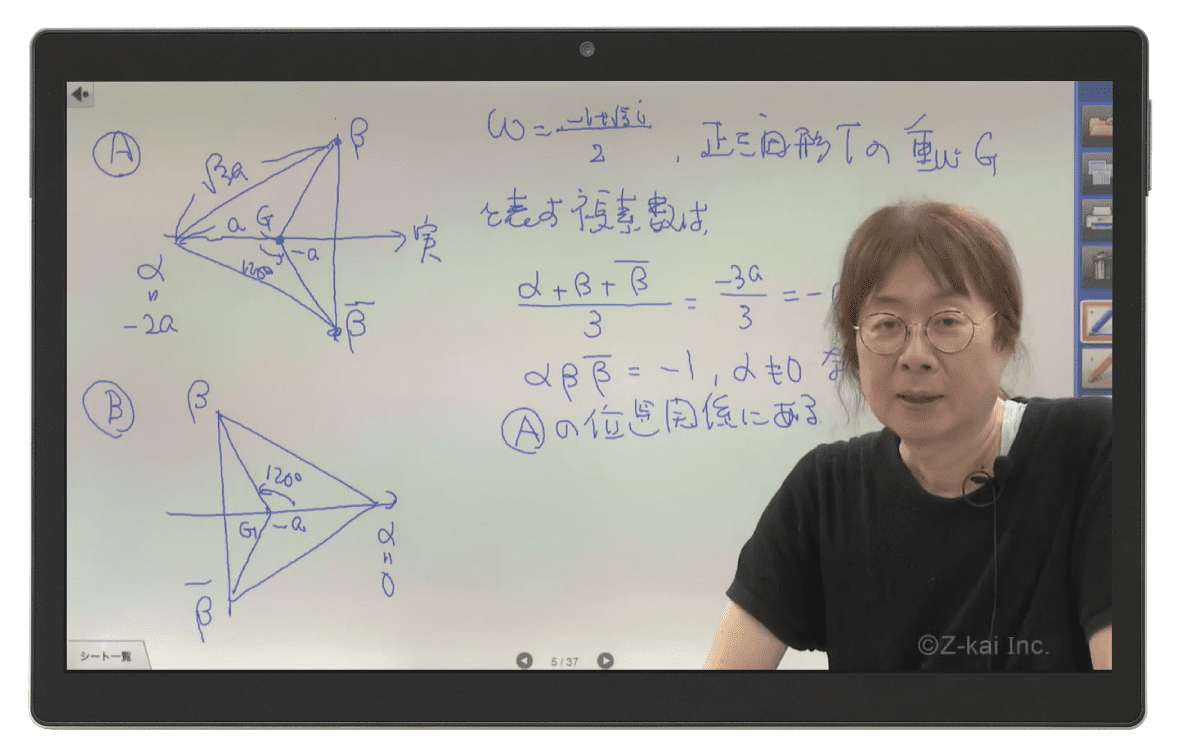 Ⓐ
β
√3a
a
G
-a
120°
実
α
"
-2a
β̅
Ⓑ
β
120°
G
-a
α
"
0
β̅
ω = (-1+√3i)/2 , 正三角形Tの重心G
を表す複素数は,
(α+β+β̅)/3 = -3a/3 = -
αββ̅ = -1, α≠0 な
Ⓐの位置関係にある
シート一覧
5 / 37
©Z-kai Inc.